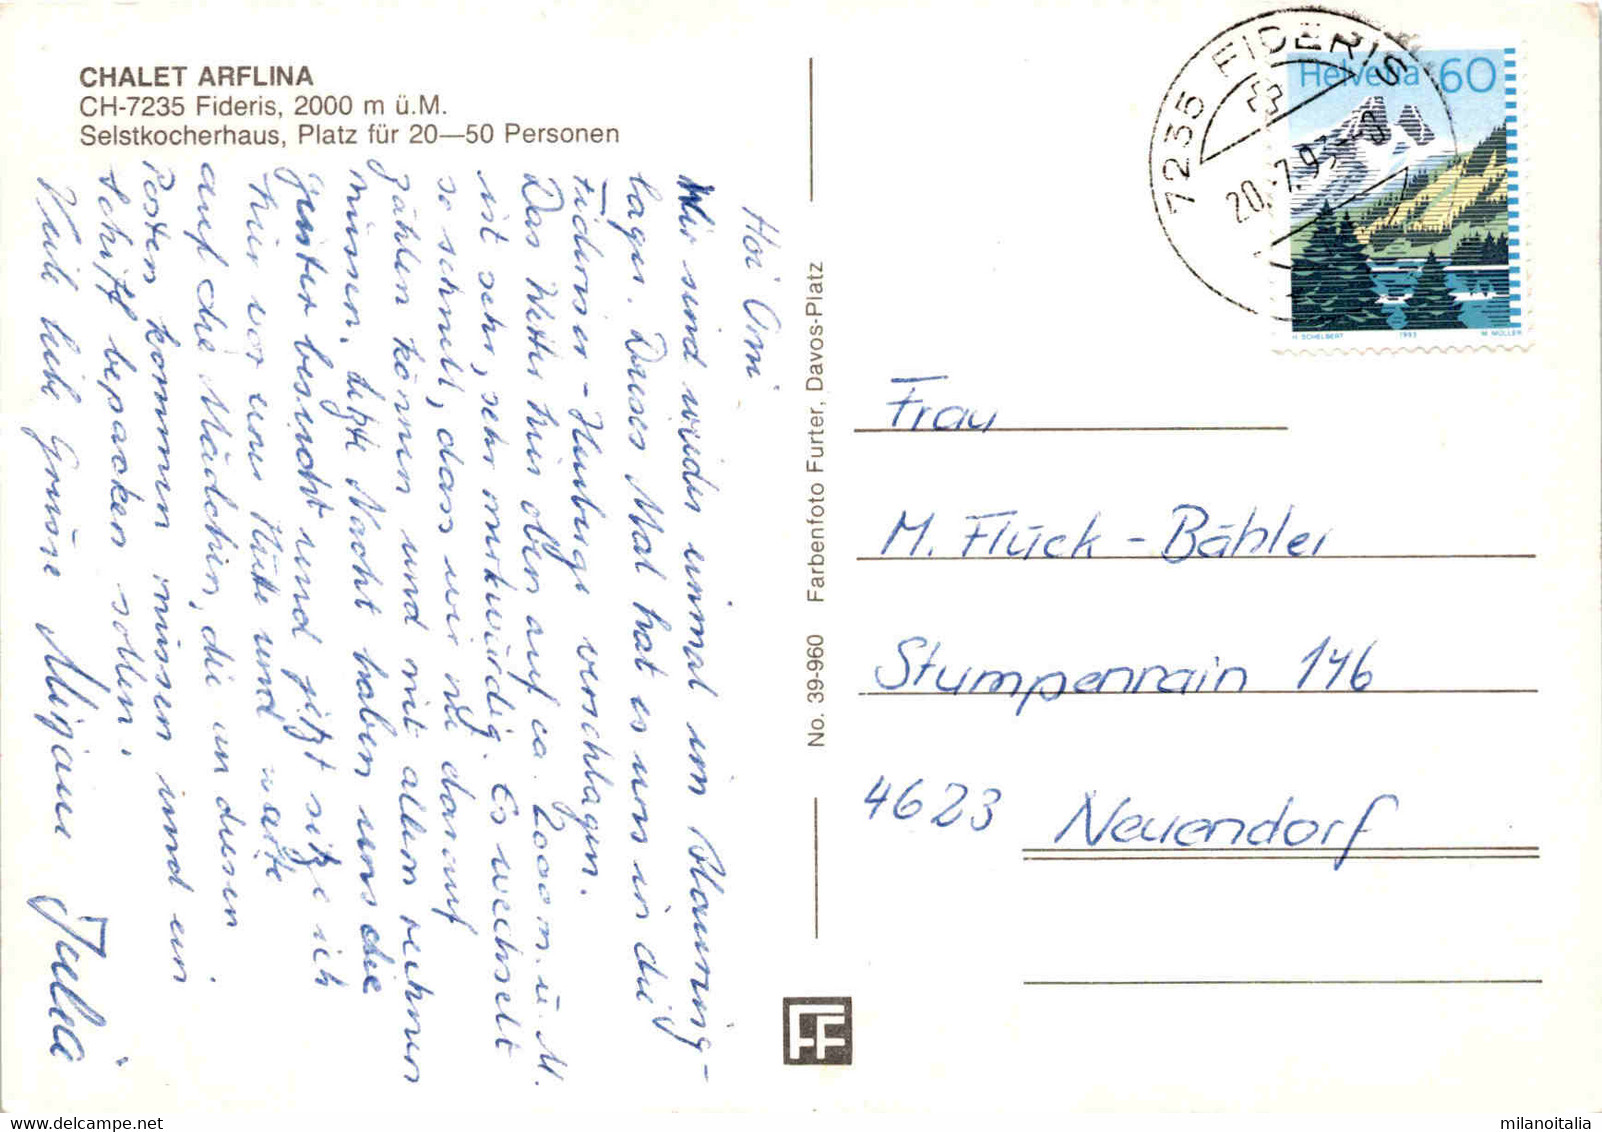 CHALET ARFLINA
CH-7235 Fideris, 2000 m ü.M.
Selstkocherhaus, Platz für 20—50 Personen
Hoi Omi
Wir sind wieder einmal im Blauring-
lager. Dieses Mal hat es uns in die
Fideriser-Heuberge verschlagen.
Das Wetter hier oben auf ca. 2000 m. ü. M.
ist sehr, sehr merkwürdig. Es wechselt
so schnell, dass wir nie darauf
zählen können und mit allem rechnen
müssen. Letzte Nacht haben uns die
Geister besucht und jetzt sitze ich
hier vor einer Hütte und warte
auf die Mädchen, die an diesen
Posten kommen müssen und ein
Schiff bepacken sollen.
Viele liebe Grüsse Mirjam Julia
No. 39-960 Farbenfoto Furter, Davos-Platz
FF
7235 FIDERIS
20.-7.93
Helvetia 60
H. SCHELBERT 1993 M. MÜLLER
Frau
M. Flück-Bähler
Stumpenrain 146
4623 Neuendorf
delcampe.net
milanoitalia